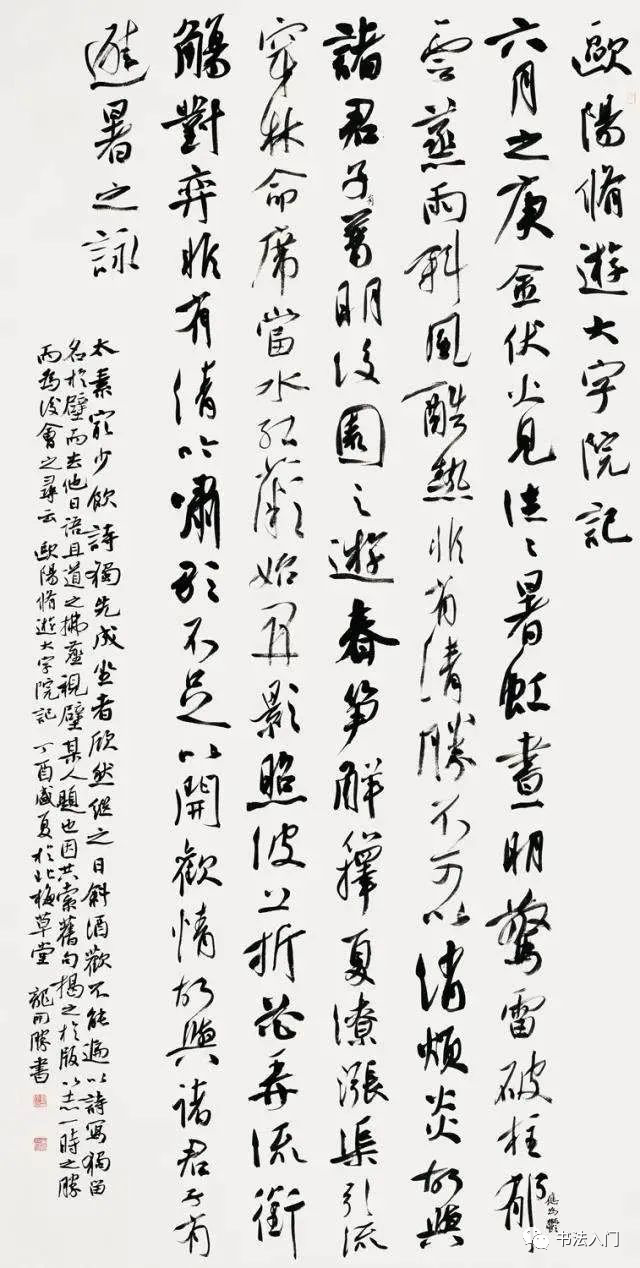 歐陽脩遊大字院記
六月之庚金伏火見往々暑虹晝明驚雷破柱郁
應為鬱
雲蒸雨斜風酷熱非有清勝不可以消煩炎故與
諸君子普明後園之遊春筍解籜夏潦漲渠引流
穿林命席當水紅薇始開影照波上折花弄流銜
觴對弈非有清吟嘯歌不足以開歡情故與諸君子有
避暑之詠
太素最少飲詩獨先成坐者欣然繼之日斜酒歡不能遍以詩寫獨留
名於壁而去他日語且道之拂塵視壁某人題也因共索舊句揭之於版以志一時之勝
而為後會之尋云 歐陽脩遊大字院記 丁酉盛夏於北梅草堂 龍開勝書
书法入门